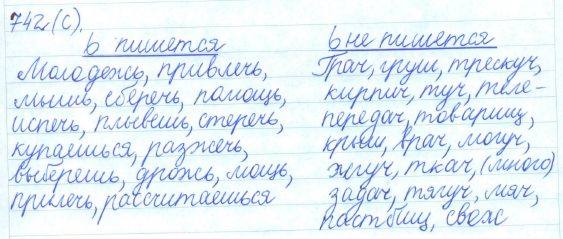 742(с).
ь пишется
Молодежь, привлечь,
мышь, сберечь, помощь,
испечь, плывешь, стеречь,
купаешься, разжечь,
выберешь, дрожь, мощь,
прилечь, рассчитаешься
ь не пишется
Грач, груш, трескуч,
кирпич, туч, теле-
передач, товарищ,
крыш, врач, могуч,
жгуч, ткач, (много)
задач, тягуч, мяч,
пастбищ, свеж